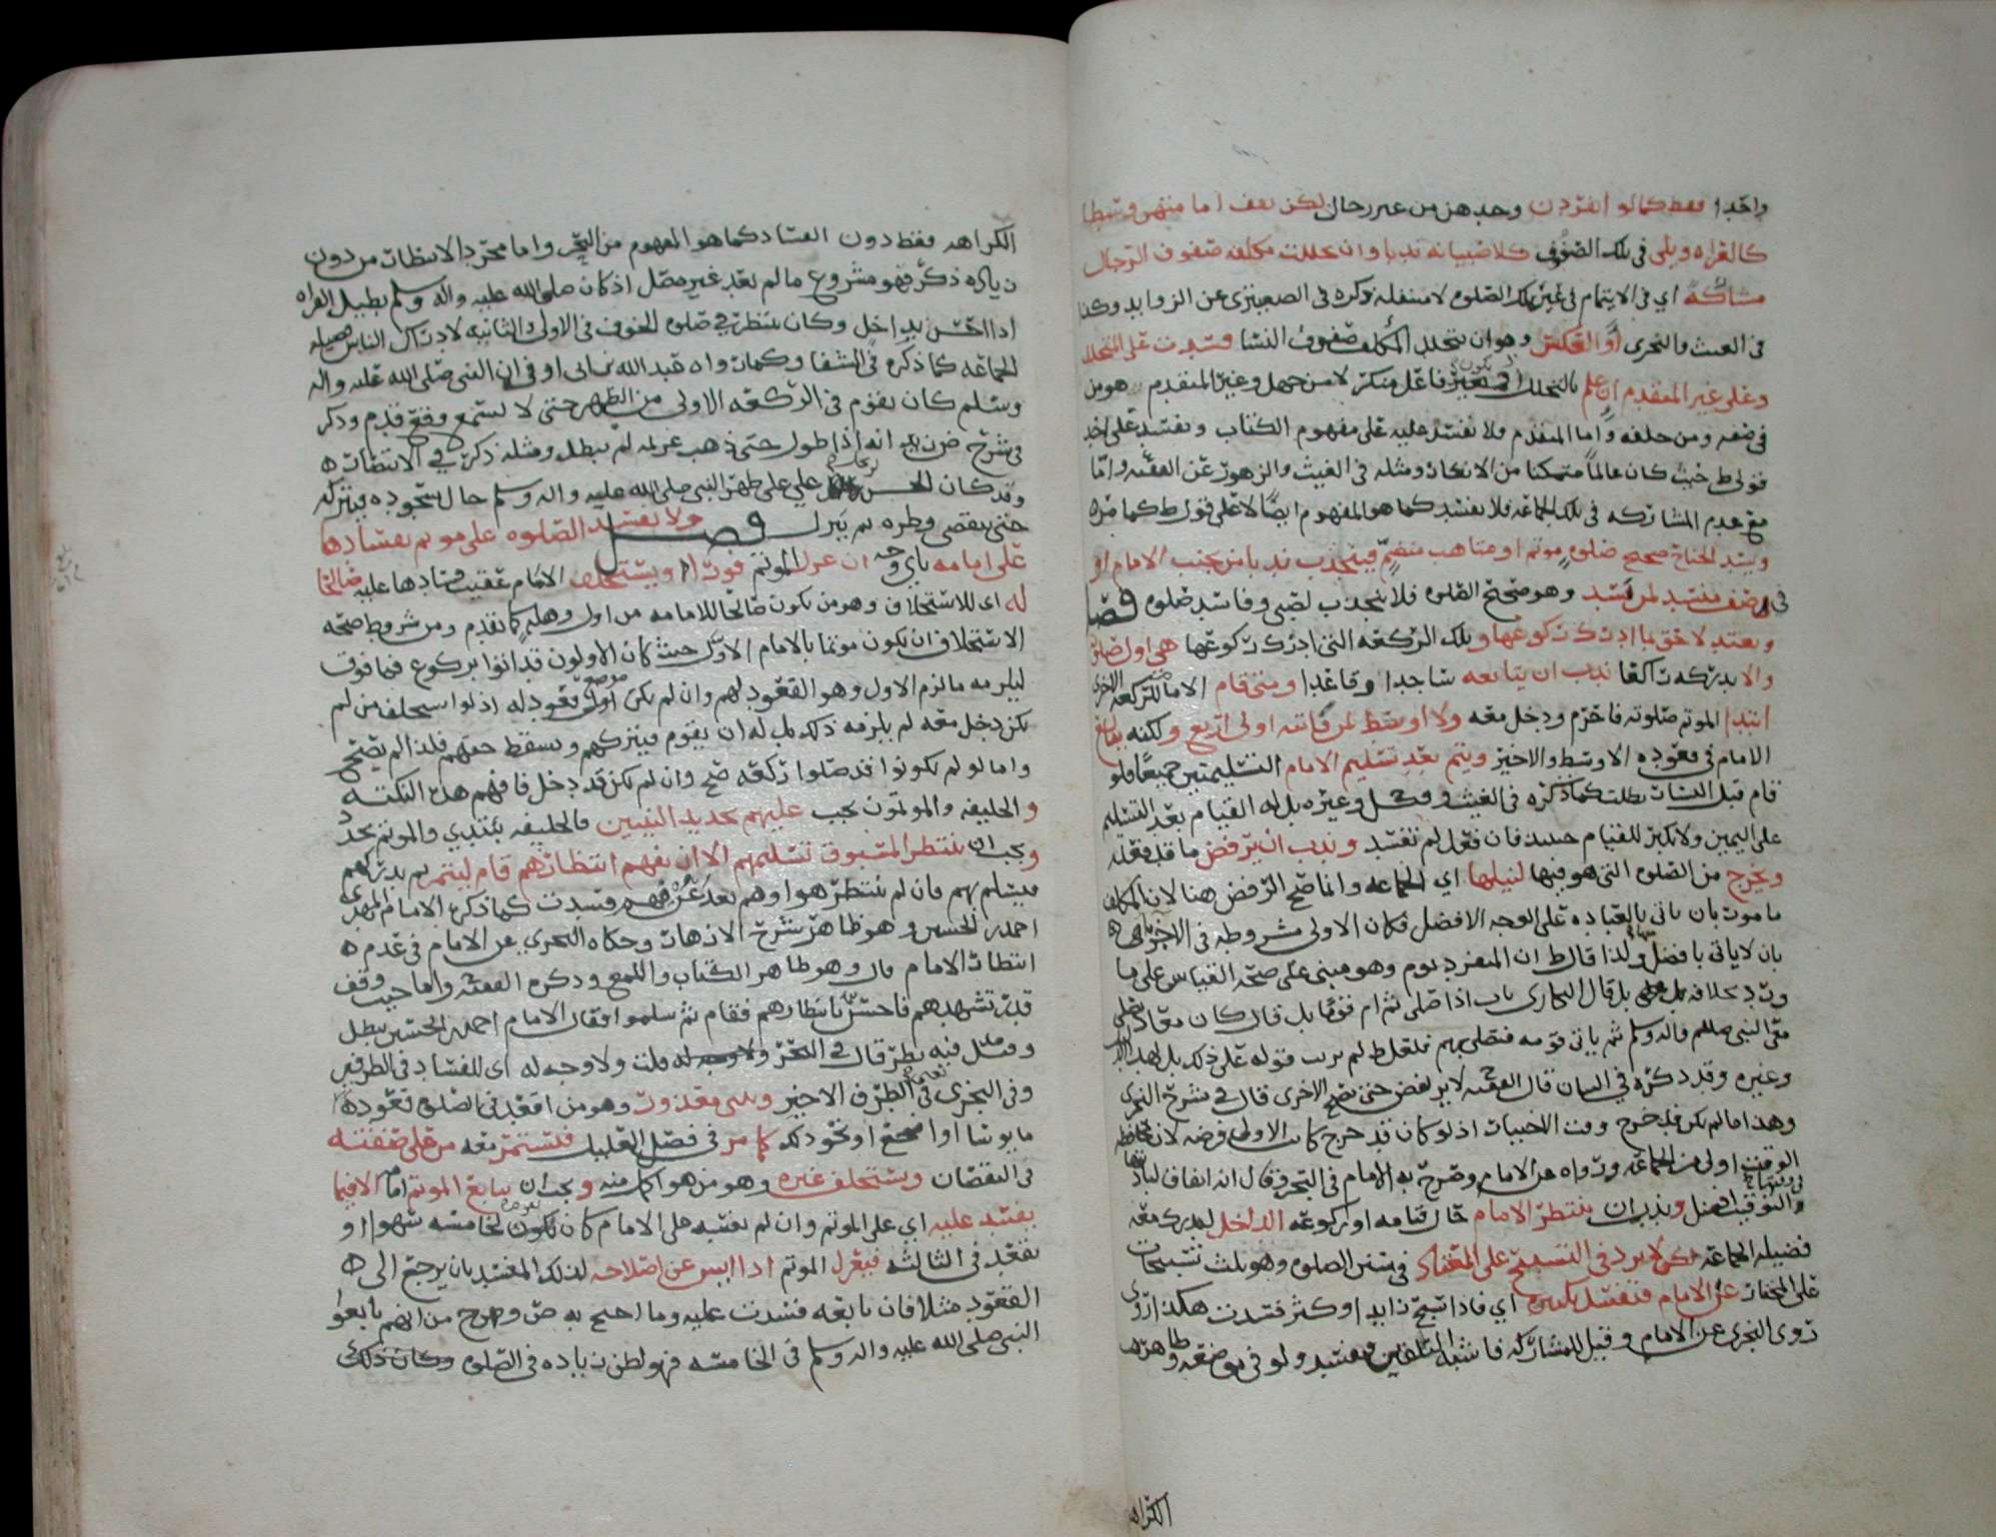 واحدا فقط كما لو انفردن وحدهن من غير رجال لكن تقف امامتهن وسطا
كالقراه ويلي في تلك الصفوف كلا صبيانه ندبا وان تخللت مكلفه صفوف الرجال
مشاركة اي في الايتمام في غير تلك الصلوه لا متنفله ذكره في الصعيتري عن الزوايد وكذا
في الغيث والنجري أو العكس وهو ان يتخلل المكلف صفوف النسا فسدت على المتخلل
وعلى غير المتقدم ان علم بالتخلل في غير فاعل منكر لا من جهل وغير المتقدم هو من
في صفه ومن خلفه واما المتقدم فلا تفسد عليه على مفهوم الكتاب وتفسد على احد
قولي ط حيث كان عالما متمكنا من الانكار ومثله في الغيث والزهور عن الفقيه واما
مع عدم المشاركه في تلك الجماعه فلا تفسد كما هو المفهوم ايضا لا على قول ط كما مر
ويسد الجناح صحيح صلوه موتم او متاهب منضم فينجذب ندبا من بجنب الامام او
في صف منسد لمن يسد وهو صحيح الصلوه فلا ينجذب لصبي وفاسد صلوه فصل
ويعتد لاحق بما ادرك ركوعها وتلك الركعه التي ادرك ركوعها هي اول صلوته
والا يدركه راكعا ندب ان يتابعه ساجدا وقاعدا ومتى قام الامام للركعه الاخرى
ابتدا الموتم صلوته فاحرم ودخل معه ولا اوسط لمن فاتته اولى اربع ولكنه يتابع
الامام في قعوده الاوسط والاخير ويتم بعد تسليم الامام التسليمتين جميعا فلو
قام قبل اليسار بطلت كما ذكره في الغيث وغيره بل له القيام بعد التسليم
على اليمين ولا يكبر للقيام حينئذ فان فعل لم تفسد وندب ان يرفض ما قد فعله
ويخرج من الصلوه التي هو فيها لنيلها اي الجماعه وانما صح الرفض هنا لان المكلف
مامور بان ياتي بالعباده على الوجه الافضل فكان الاولى مشروطه في الاجزا
بان لا ياتي بافضل منها ولذا قال ط ان المنفرد يوم وهو مبني على صحة القياس على ما
ورد بخلافه بل قال البخاري باب اذا صلى ثم ام قوما بل قال كان معاذ يصلي
مع النبي صللم واله وسلم ثم ياتي قومه فيصلي بهم
وغيره وقد ذكره في البيان قال الفقيه لا يرتفض حتى تصح الاخرى قال في شرح النجري
وهذا ما لم يكن قد خرج وقت الاختيار اذ لو كان قد خرج كان الاولى فرضه لان محافظه
الوقت اولى من الجماعه ورواه عن الامام وصرح به الامام في البحر وقال انه اتفاق
والتوقيت افضل وندب ان ينتظر الامام حال قيامه او ركوعه الداخل ليدرك معه
فضيله الجماعه لكن لا يزد في التسبيح على المعتاد في سنن الصلوه وهو ثلث تسبيحات
على المختار عن الامام فتفسد بكثيره اي فاذا سبح زايدا وكثر فسدت هكذا روى
روى النجري عن الامام وقيل للمشاركه فاشبه التلقين فيفسد ولو في موضعه وظاهره
الكراه
الكراهه فقط دون الفساد كما هو المفهوم من البحر واما مجرد الانتظار من دون
زياده ذكر فهو مشروع ما لم يعد غير مصل اذ كان صلى الله عليه واله وسلم يطيل القراه
اذا احس بداخل وكان ينتظر في صلوه الخوف في الاولى والثانيه لادراك الناس فضيله
الجماعه كما ذكره في الشفا وكما رواه عبد الله بن ابي اوفى ان النبي صلى الله عليه واله
وسلم كان يقوم في الركعه الاولى من الظهر حتى لا يسمع وقع قدم وذكر
في شرح ض زيد انه اذا طول حتى ذهب غرضه لم تبطل ومثله ذكره في الانتصار
وقد كان الحسن بن علي على ظهر النبي صلى الله عليه واله وسلم حال سجوده فيتركه
حتى يقضي وطره ثم ينزل فصل ولا تفسد الصلوه على موتم بفسادها
على امامه باي وجه ان عزل الموتم فورا ويستخلف الامام عقيب فسادها عليه صالحا
له اي للاستخلاف وهو من يكون صالحا للامامه من اول وهله كما تقدم ومن شروط صحه
الاستخلاف ان يكون موتما بالامام الاول حيث كان الاولون قد اتوا بركوع فما فوق
ليلزمه ما لزم الاول وهو القعود لهم وان لم يكن موضع قعود له اذ لو استخلف من لم
يكن دخل معه لم يلزمه ذلك بل له ان يقوم فيتركهم ويسقط حقهم فلذا لم يصح
واما لو لم يكونوا قد صلوا ركعه صح وان لم يكن قد دخل فافهم هذه النكته
والخليفه والموتمون يجب عليهم تجديد النيتين فالخليفه يبتدي والموتم يجدد
ويجب ان ينتظر المسبوق تسليمهم الا ان يفهم انتظارهم قام ليتم ثم يدركهم
فيسلم بهم فان لم ينتظر هو او هم بعد فسدت كما ذكره الامام المهدي
احمد بن الحسين وهو ظاهر شرح الازهار وحكاه النجري عن الامام في عدم
انتظار الامام قال وهو ظاهر الكتاب واللمع وذكره الفقيه واما حيث وقف
قدر تشهدهم فاحس بانتظارهم فقام ثم سلموا فقال الامام احمد بن الحسين تبطل
وقيل فيه نظر قال في البحر ولا وجه له قلت ولا وجه له اي للفساد في الطرفين
وفي النجري في الطرف الاخير ولمن تعذرت وهو من اقعد في الصلوه قعوده
مايوسا او نحو ذلك كما مر في فصل العليل فليستمر معه من على صفته
في النقصان ويستخلف غيره وهو من هو اكمل منه ويجب ان يتابع الموتم امامه الا فيما
يفسد عليه اي على الموتم وان لم يفسد على الامام كان يكون لخامسه سهوا او
يقعد في الثالثه فيعزل الموتم اذا ايس عن اصلاحه لذلك المفسد بان يرجع الى
القعود مثلا فان تابعه فسدت عليه وما احتج به ص وح من انهم تابعوا
النبي صلى الله عليه واله وسلم في الخامسه فهو لظن زياده في الصلوه وكان ذلك